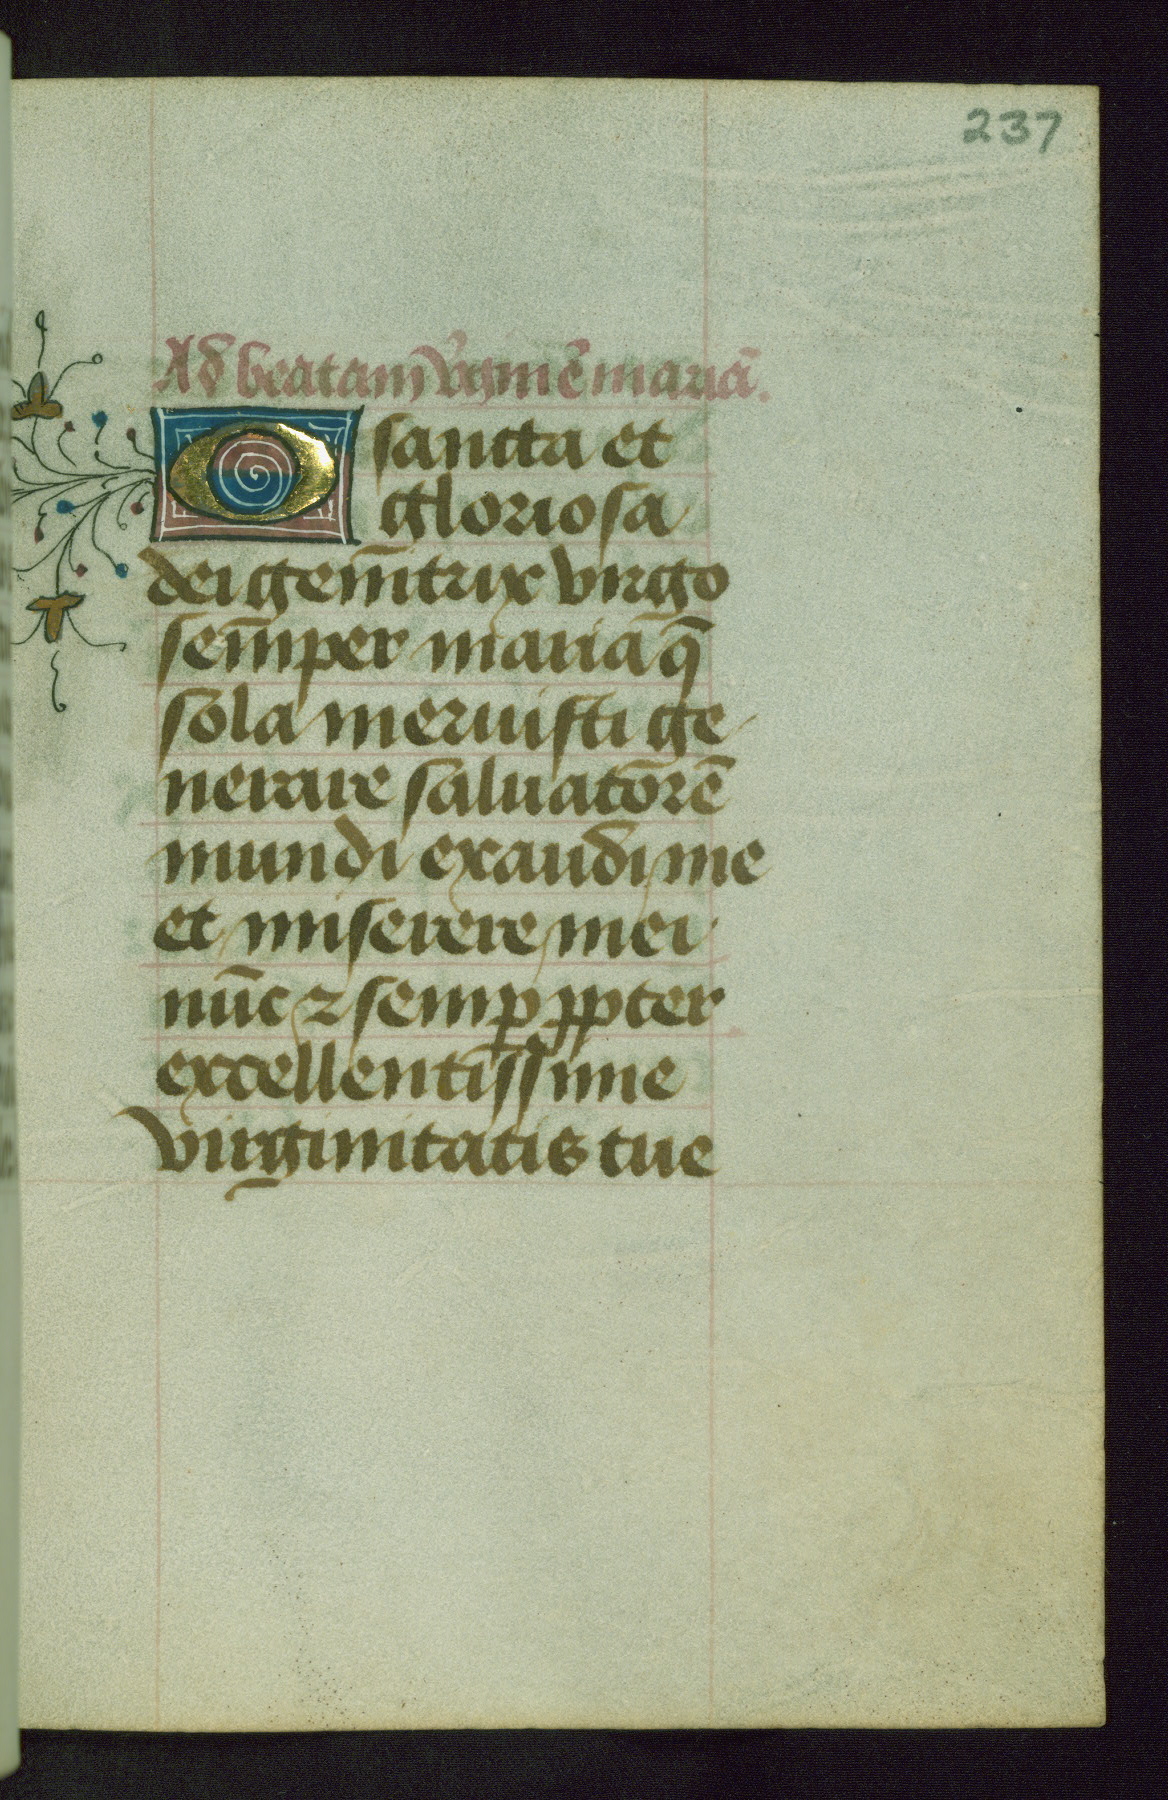 237
Ad beatam v̾gīnē mariā.
O sancta et
gloriosa
dei genitrix virgo
semper maria q̄
sola meruisti ge
nerare saluatorē
mundi exaudi me
et miserere mei
nūc ⁊ semꝑ ꝓpter
excellentissime
virginitatis tue